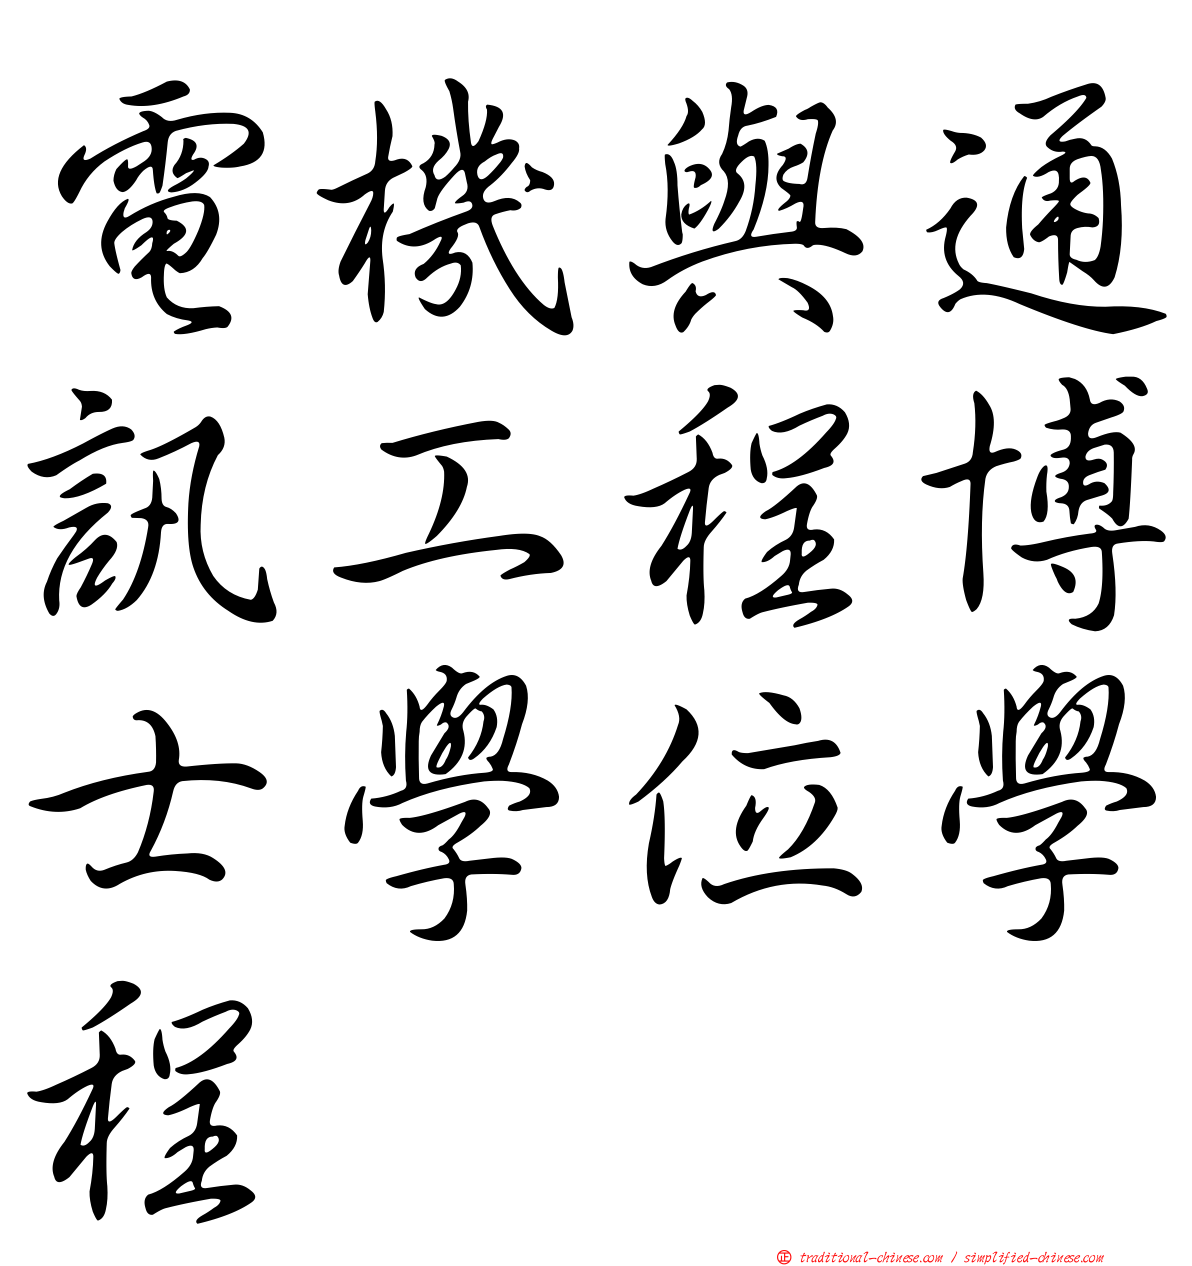 電機與通
訊工程博
士學位學
程
正 traditional-chinese.com / simplified-chinese.com